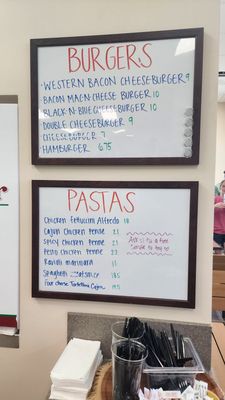 BURGERS
WESTERN BACON CHEESEBURGER 9
BACON MAC-N-CHEESE BURGER 10
BLACK-N-BLUE CHEESEBURGER 10
DOUBLE CHEESEBURGER 9
CHEESEBURGER 7
HAMBURGER 6.75
PASTAS
Chicken Fettuccini Alfredo 18
Cajun Chicken Penne 21
Spicy Chicken Penne 21
Pesto Chicken Penne 23
Ravioli marinara
Spaghetti
Four Cheese Tortellini 19.5